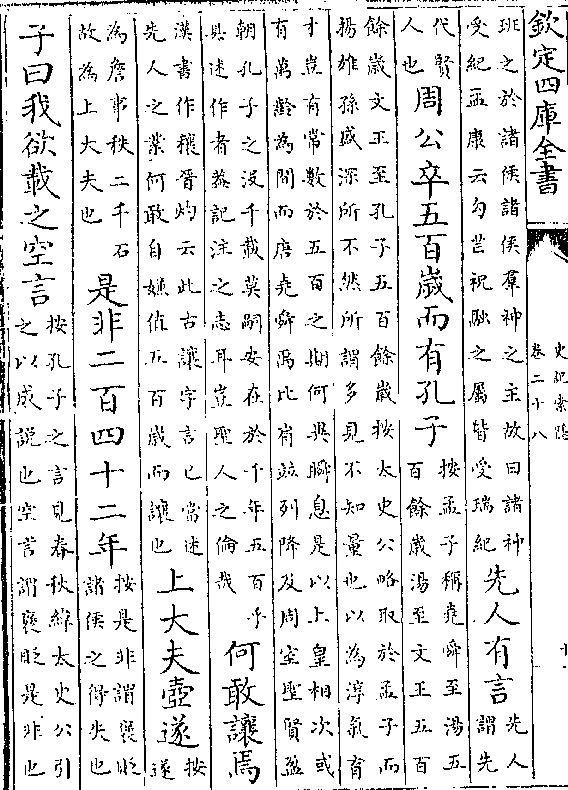 欽定四庫全書
史記索隱
卷二十八
班之於諸侯諸侯羣神之主故曰諸神
受紀孟康云勾芒祝融之屬皆受瑞紀
先人有言
先人
謂先
代賢
人也
周公卒五百歲而有孔子
按孟子稱堯舜至湯五
百餘歲湯至文王五百
餘歲文王至孔子五百餘歲按太史公略取於孟子而
揚雄孫盛深所不然所謂多見不知量也以為淳氣育
才豈有常數於五百之期何異瞬息是以上皇相次或
有萬齡為間而唐堯舜禹比肩竝列降及周室聖賢盈
朝孔子之沒千載莫嗣安在於千年五百乎
具述作者葢記注之志耳豈聖人之倫哉
何敢讓焉
漢書作穰晉灼云此古讓字言已當述
先人之業何敢自嫌值五百歲而讓也
上大夫壺遂
按
遂
為詹事秩二千石
故為上大夫也
是非二百四十二年
按是非謂褒貶
諸侯之得失也
子曰我欲載之空言
按孔子之言見春秋緯太史公引
之以成説也空言謂褒貶是非也